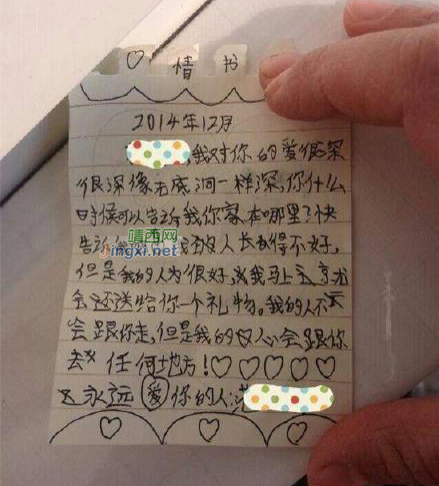 ♡ 情书
2014年12月
我对你的爱很深
很深像无底洞一样深,你什么
时候可以告诉我你家在哪里?快
告诉我
靖西网
jingxi.net
人长得不好,
但是我的人为很好,我马上
会还送给你一个礼物。我的人不
会跟你走,但是我的心会跟你
去 任何地方!♡♡♡♡♡
永远爱你的人: